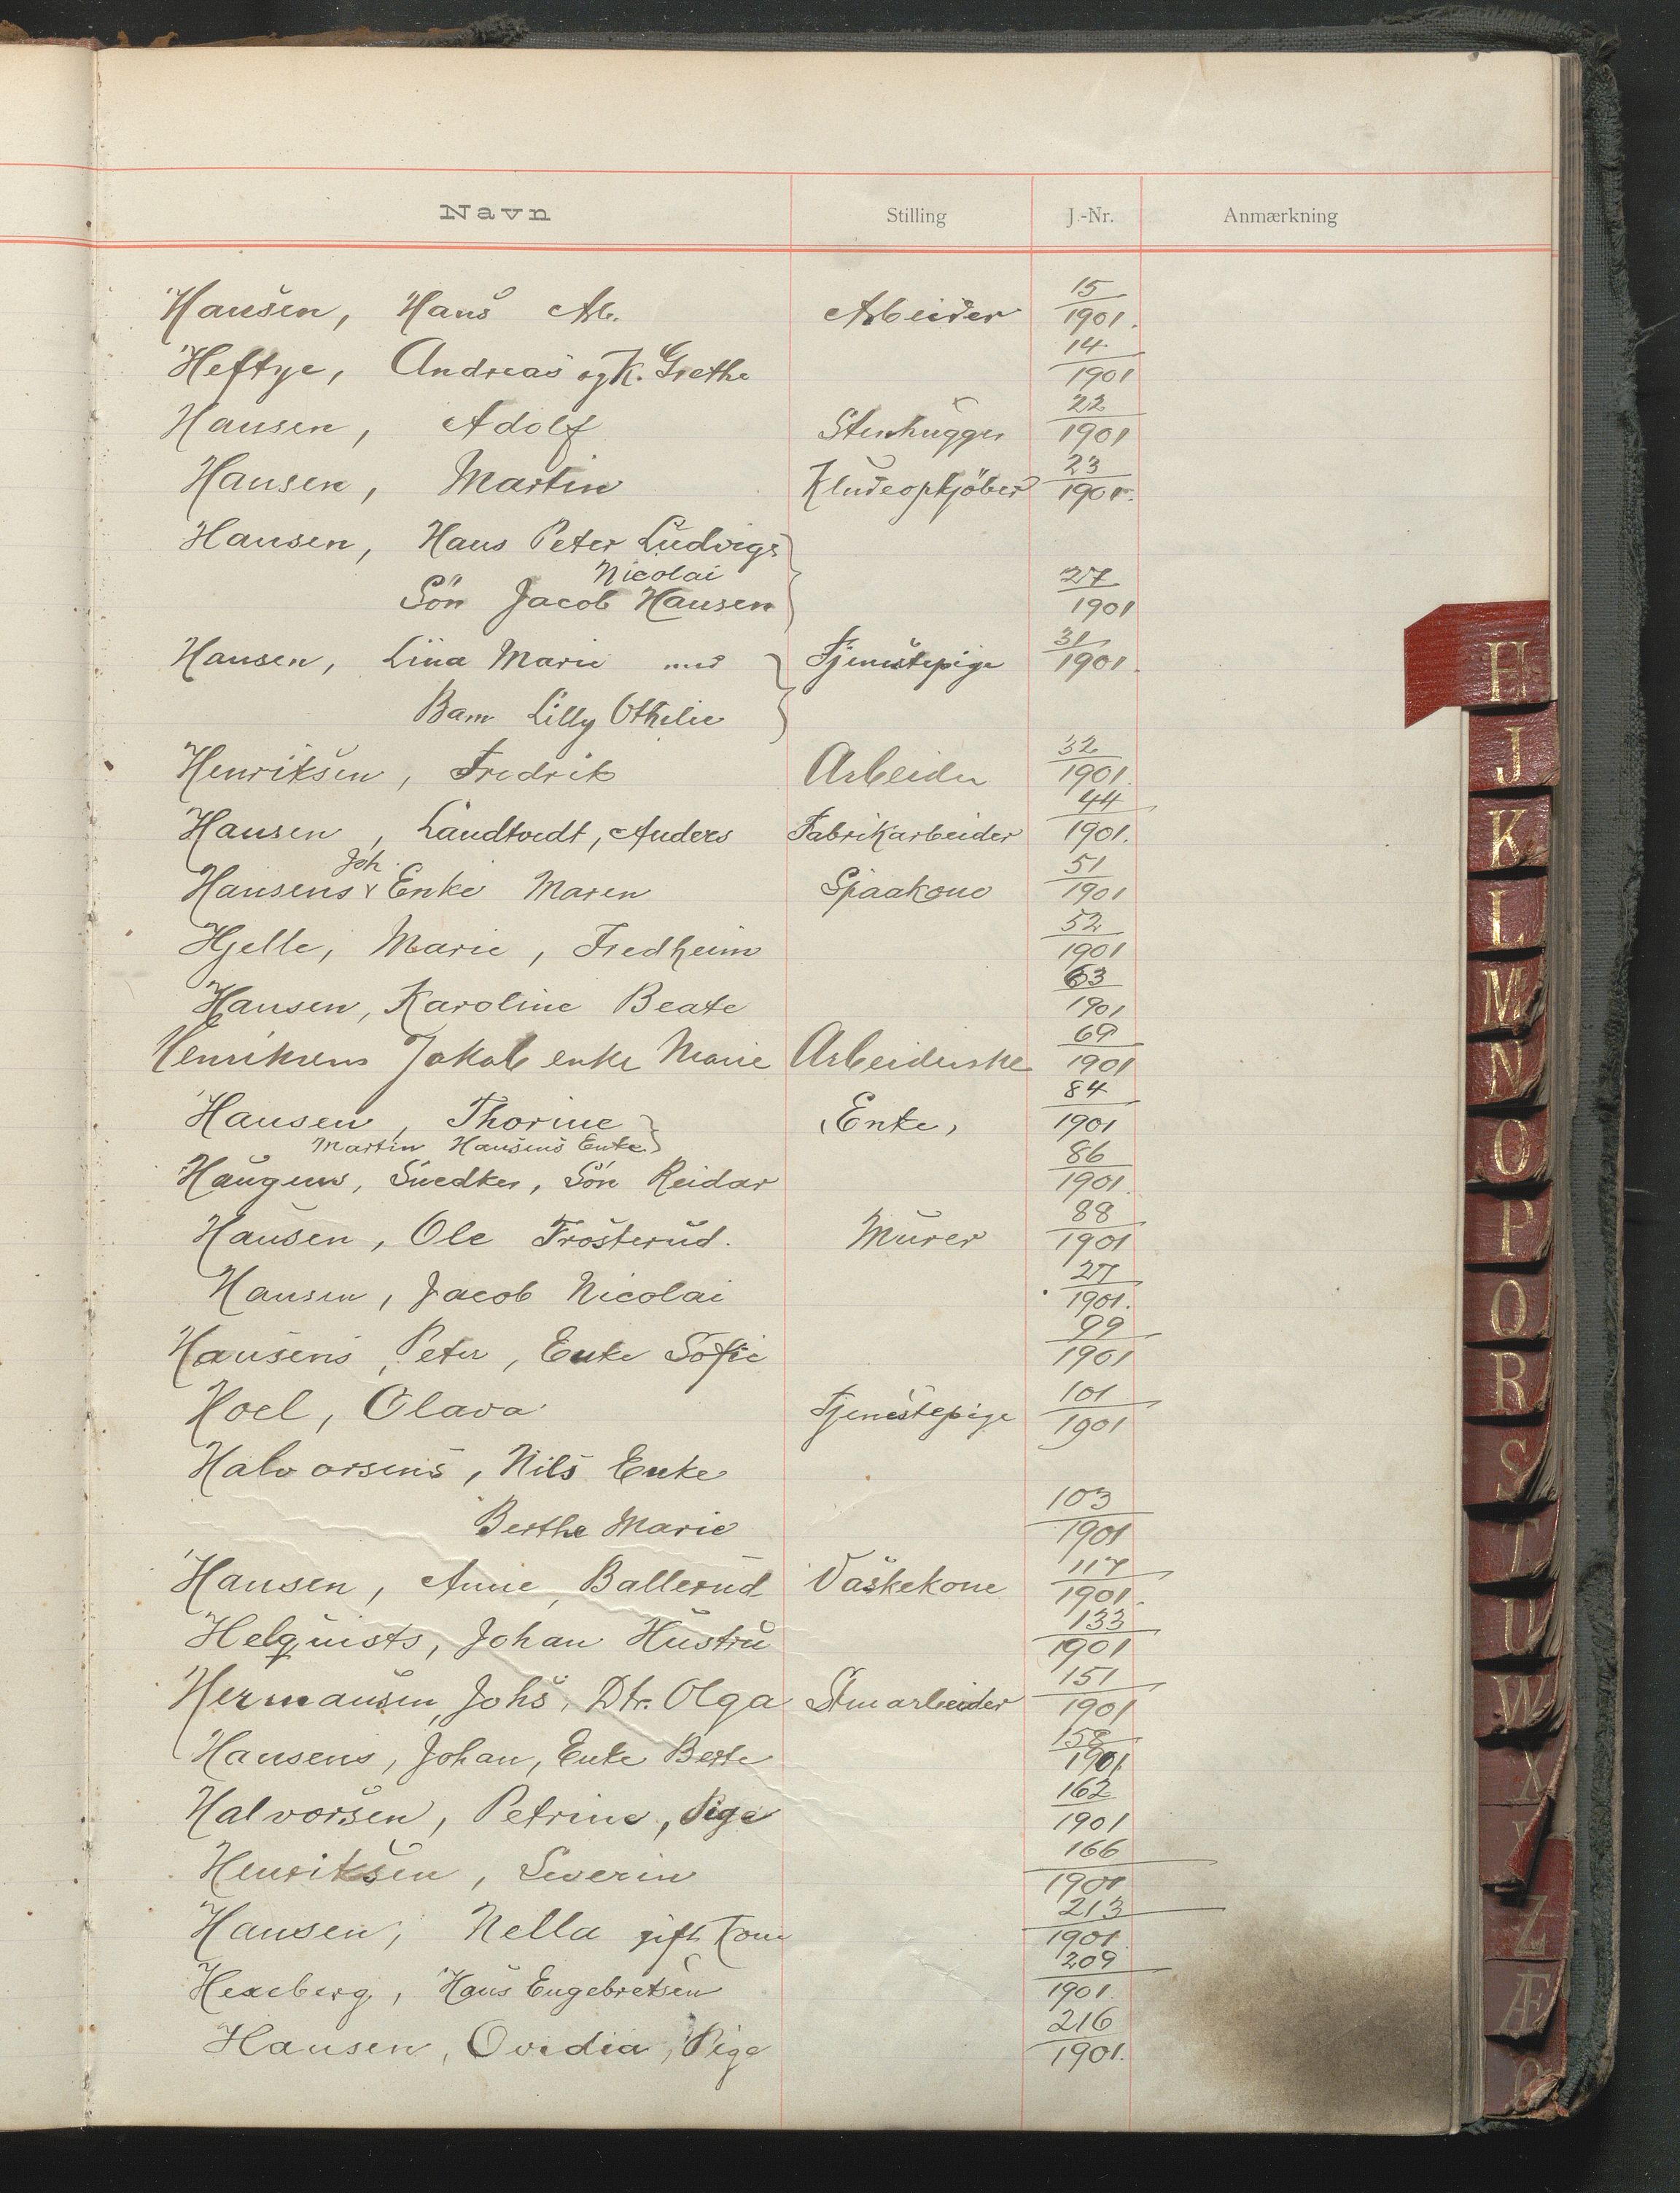 Navn Stilling J.-Nr. Anmærkning
Hansen, Hans Ab. Arbeider 15/1901.
Heftye, Andreas og K. Grethe 14/1901
Hansen, Adolf Stenhugger 22/1901
Hansen, Martin Kludeopkjöber 23/1901.
Hansen, Hans Peter Ludvigs
Nicolai
Sön Jacob Hansen 27/1901
Hansen, Lina Marie med Tjenestepige 31/1901.
Barn Lilly Othelie
Henriksen, Fredrik Arbeider 32/1901.
Hansen, Landtvedt, Anders Fabrikarbeider 44/1901.
Joh.
Hansens Enke Maren Spaakone 51/1901
Hjelle, Marie, Fredheim 52/1901
Hansen, Karoline Beate 63/1901
Henriksens Jakob enke Marie Arbeiderske 69/1901
Hansen, Thorine Enke, 84/1901
Martin Hansens Enke
Haugens, Snedker, Sön Reidar 86/1901.
Hansen, Ole Frosterud. Murer 88/1901
Hansen, Jacob Nicolai 27/1901.
Hansens, Peter, Enke Sofie 99/1901
Hoel, Olava Tjenestepige 101/1901
Halvorsens, Nils Enke
Berthe Marie 103/1901
Hansen, Anne, Ballerud Vaskekone 117/1901.
Helquists, Johan Hustru 133/1901
Hermansen, Johs, Dtr. Olga Stenarbeider 151/1901
Hansens, Johan, Enke Berte 158/1901
Halvorsen, Petrine, Pige 162/1901
Henriksen, Severin 166/1901
Hansen, Nella gift Kone 213/1901.
Hexeberg, Hans Engebretsen 209/1901.
Hansen, Ovidia, Pige 216/1901.
H
J
K
L
M
N
O
P
Q
R
S
T
U
W
X
Z
Æ
Ø